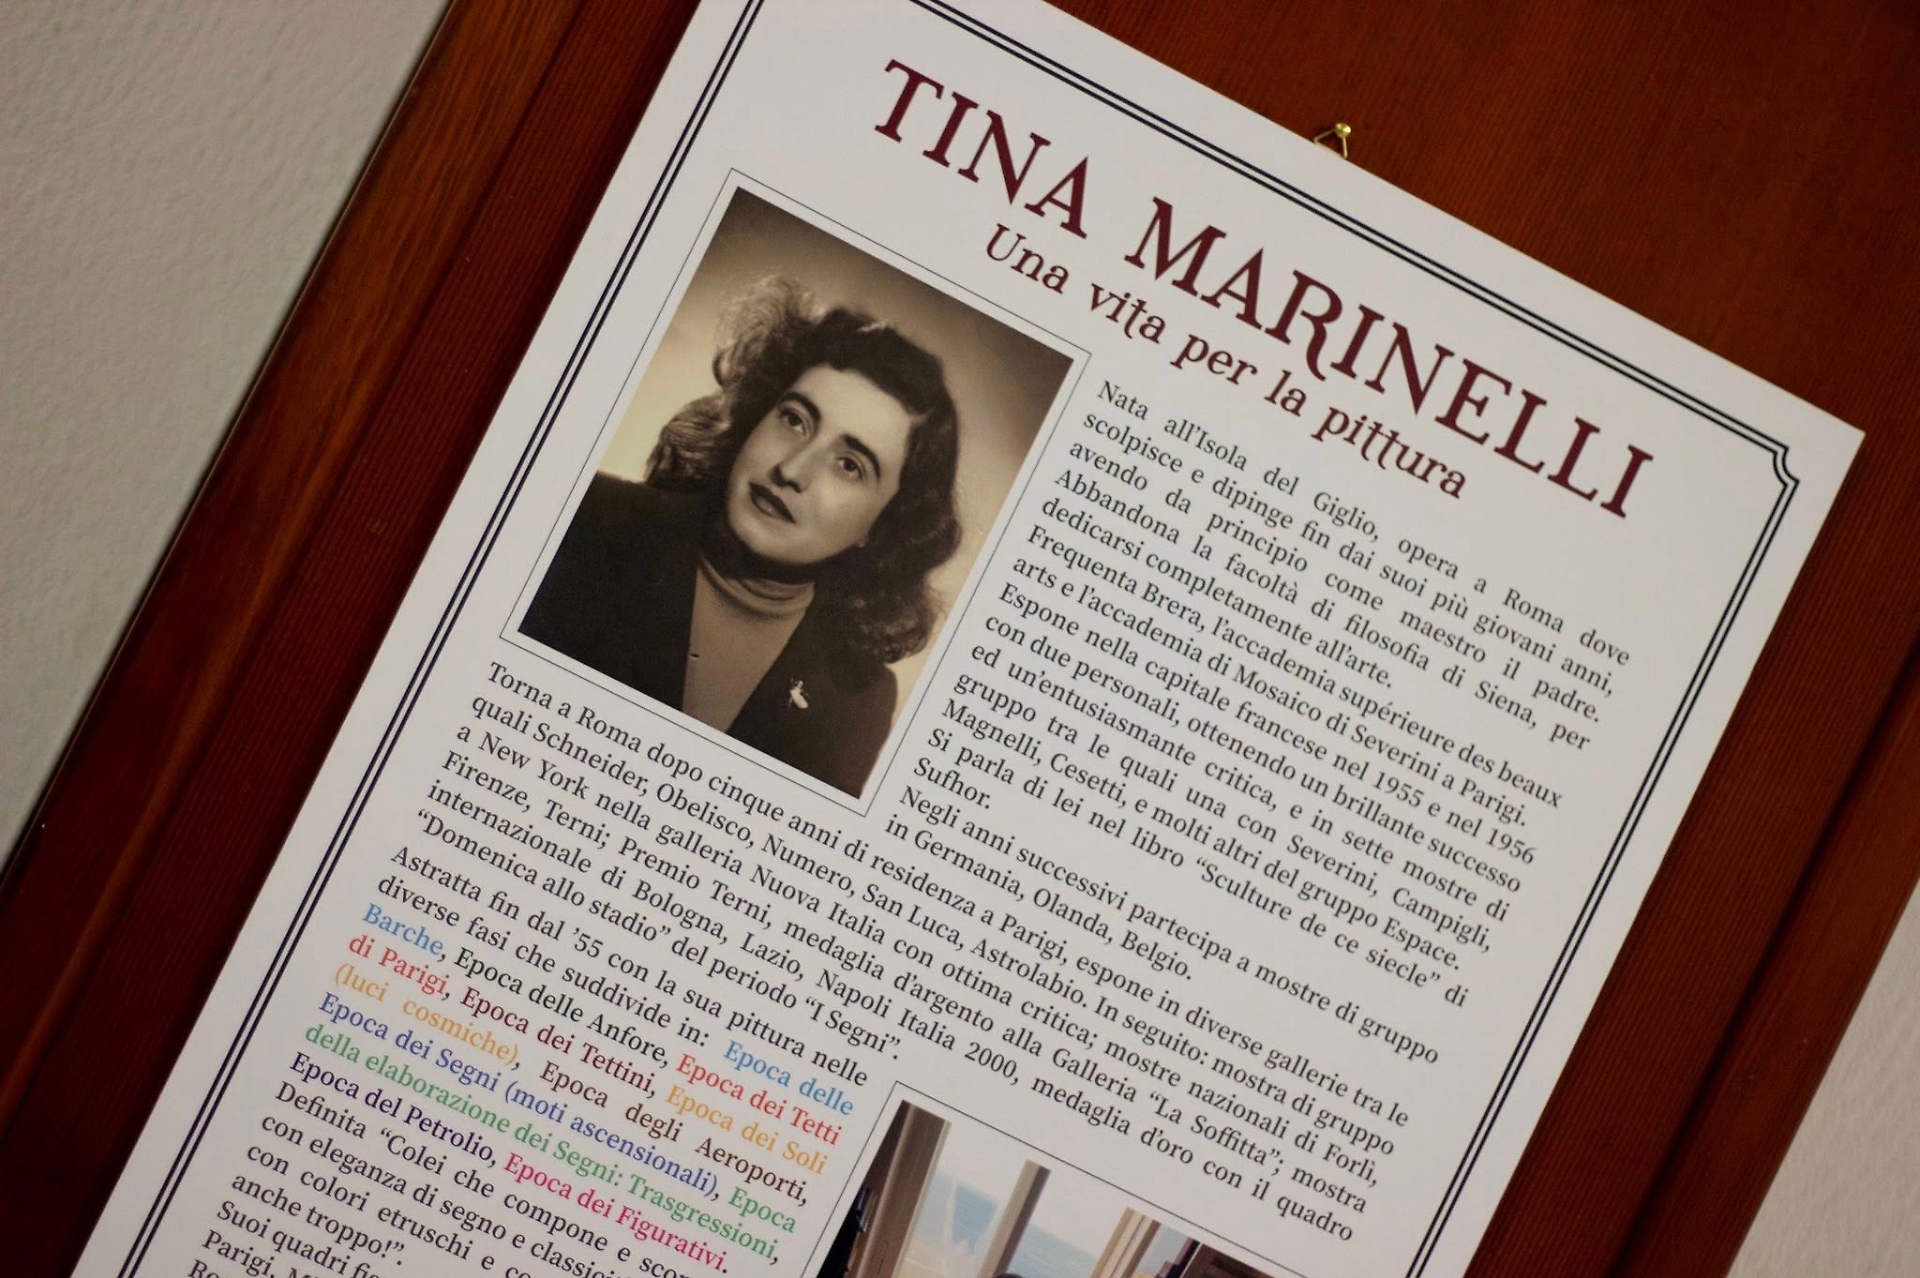 TINA MARINELLI
Una vita per la pittura
Nata all'Isola del Giglio, opera a Roma dove
scolpisce e dipinge fin dai suoi più giovani anni,
avendo da principio come maestro il padre.
Abbandona la facoltà di filosofia di Siena, per
dedicarsi completamente all'arte.
Frequenta Brera, l'accademia supérieure des beaux
arts e l'accademia di Mosaico di Severini a Parigi.
Espone nella capitale francese nel 1955 e nel 1956
con due personali, ottenendo un brillante successo
ed un'entusiasmante critica, e in sette mostre di
gruppo tra le quali una con Severini, Campigli,
Magnelli, Cesetti, e molti altri del gruppo Espace.
Si parla di lei nel libro “Sculture de ce siecle” di
Sufhor.
Negli anni successivi partecipa a mostre di gruppo
in Germania, Olanda, Belgio.
Torna a Roma dopo cinque anni di residenza a Parigi, espone in diverse gallerie tra le
quali Schneider, Obelisco, Numero, San Luca, Astrolabio. In seguito: mostra di gruppo
a New York nella galleria Nuova Italia con ottima critica; mostre nazionali di Forlì,
Firenze, Terni; Premio Terni, medaglia d'argento alla Galleria “La Soffitta”; mostra
internazionale di Bologna, Lazio, Napoli Italia 2000, medaglia d'oro con il quadro
“Domenica allo stadio” del periodo “I Segni”.
Astratta fin dal '55 con la sua pittura nelle
diverse fasi che suddivide in: Epoca delle
Barche, Epoca delle Anfore, Epoca dei Tetti
di Parigi, Epoca dei Tettini, Epoca dei Soli
(luci cosmiche), Epoca degli Aeroporti,
Epoca dei Segni (moti ascensionali), Epoca
della elaborazione dei Segni: Trasgressioni,
Epoca del Petrolio, Epoca dei Figurativi.
Definita “Colei che compone e
con eleganza di segno e
con colori etruschi e
anche troppo!”.
Suoi quadri
Parigi,